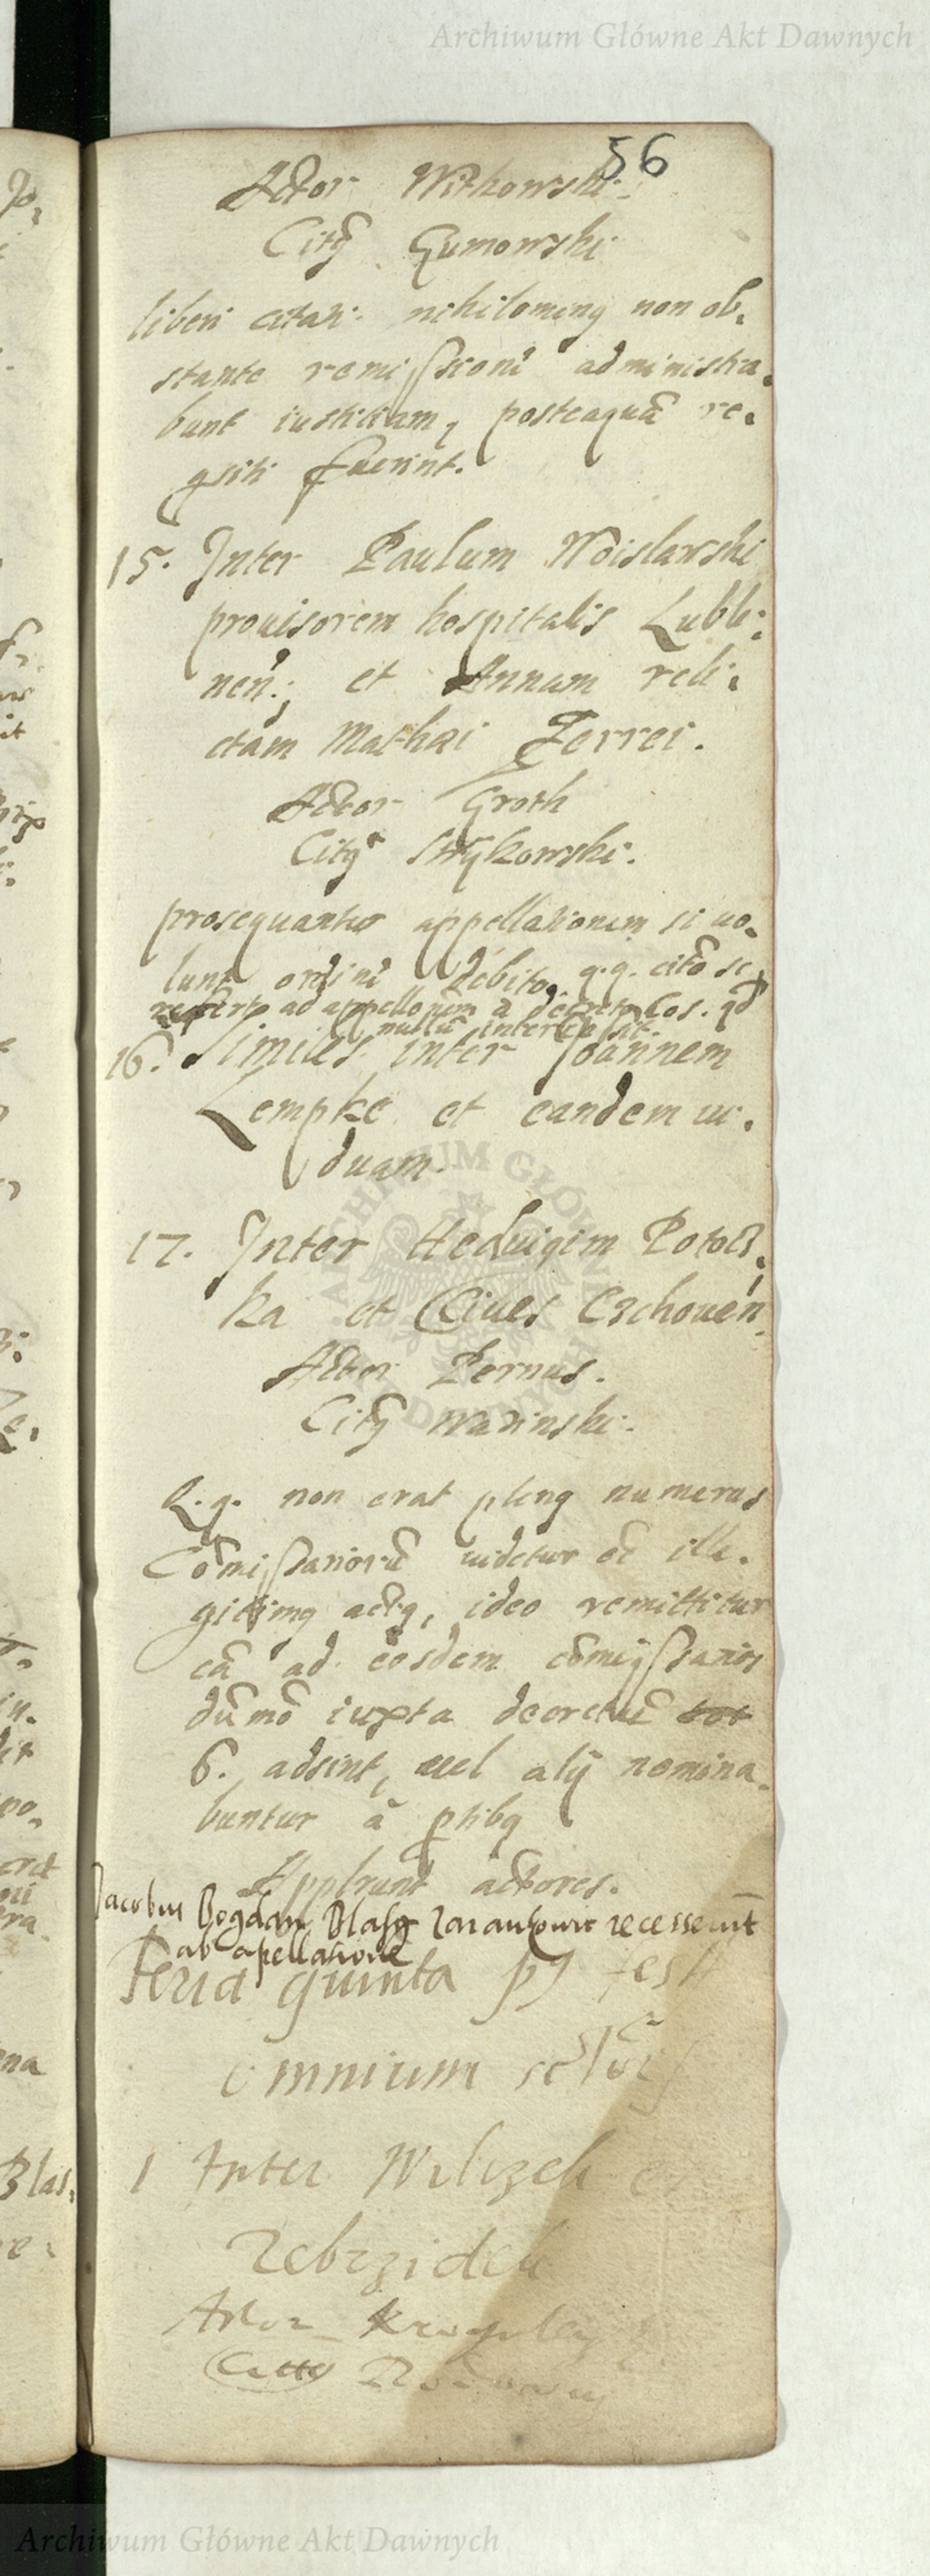 Archiwum Główne Akt Dawnych
56
Actor Witkowski
Citq Gumowski
liberi citari. nihilominq non ob,
stante remissioni administra,
bunt iustitiam, posteaquã re,
qsiti fuerint.
15. Inter Paulum Woislawski
prouisorem hospitalis Lubli,
nen.; et Annam reli,
ctam Mathai Ferrei.
Actor Groth
Citq Strÿkowski.
prosequantur appellationem si uo,
lunt ordine debito, q.q. citõ se
ad appellonem à decreto Cos. qd
nullũ
16. Similes inter Joannem
Lempke et eandem ui,
duam.
17. Inter Heduigim Potoc,
ka et Ciues Czchouen
Actor Pernus.
Citq Warinski.
Q.q. non erat plenq numerus
Cõmissariorũ uidetur ec ille,
gitimq actq, ideo remittitur
cã ad eosdem cõmissarios
dũmõ iuxta decretũ
6. adsint, uel alÿ nomina,
buntur à ptibq
Applrunt actores.
Jacobus Bogdan Blasq recesserũt
ab apellatione
Feria quinta pq festi
omnium sctorũ
1 Inter Wilczek et
Zebrzidek
Actor
Citq
ARCHIWUM GŁÓWNE AKT DAWNYCH
Archiwum Główne Akt Dawnych